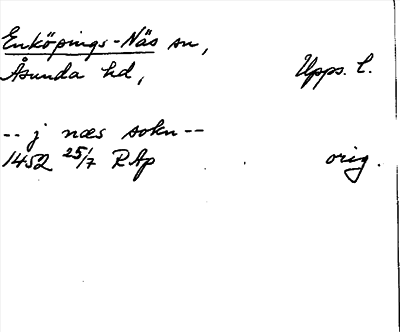 Enköpings-Näs sn,
Åsunda hd, Upps. l.
-- j næs sokn --
1452 25/7 RAp orig.